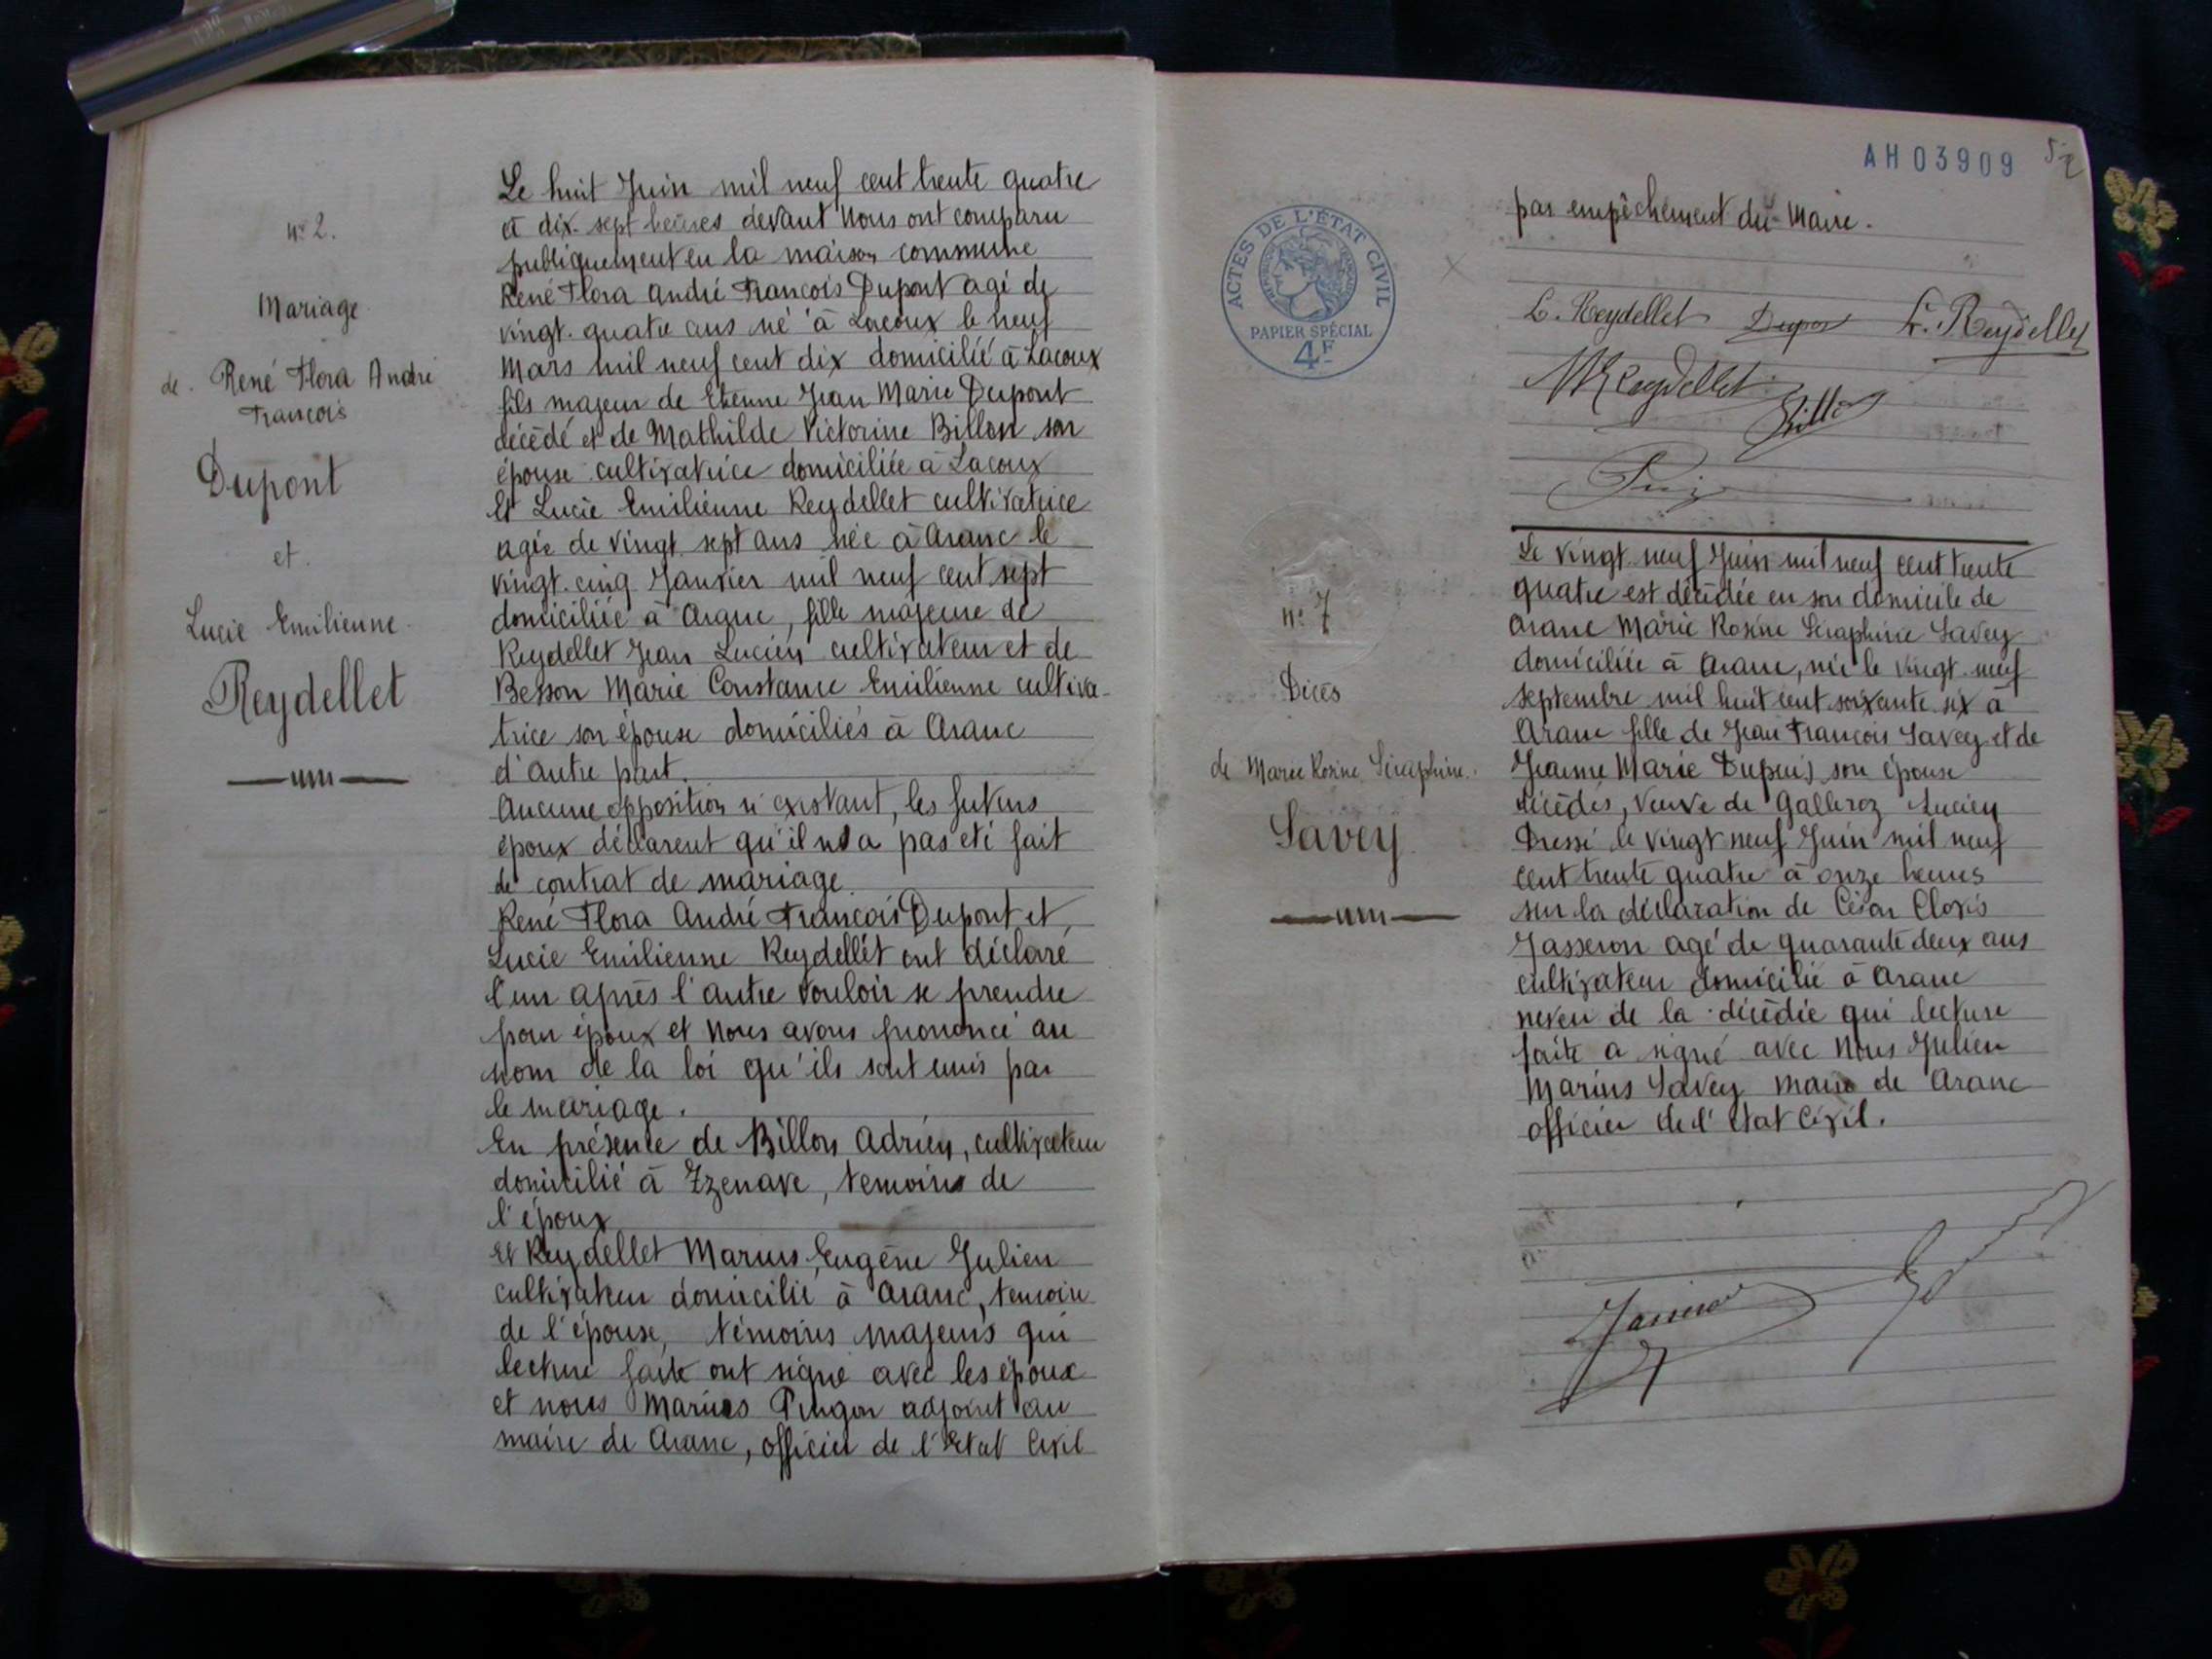 n° 2.
Mariage
de René Flora André
François
Dupont
et
Lucie Emilienne
Reydellet
Le huit Juin mil neuf cent trente quatre
à dix-sept heures devant Nous ont comparu
publiquement en la maison commune
René Flora André François Dupont agé de
vingt-quatre ans né à Lacoux le neuf
Mars mil neuf cent dix domicilié à Lacoux
fils majeur de Etienne Jean Marie Dupont
décédé et de Mathilde Victorine Billon son
épouse cultivatrice domiciliée à Lacoux
Et Lucie Emilienne Reydellet cultivatrice
agée de vingt sept ans née à Aranc le
vingt-cinq Janvier mil neuf cent sept
domiciliée à Aranc, fille majeure de
Reydellet Jean Lucien cultivateur et de
Besson Marie Constance Emilienne cultiva-
trice son épouse domiciliés à Aranc
d'autre part.
Aucune opposition n'existant, les futurs
époux déclarent qu'il n'a pas eté fait
de contrat de mariage.
René Flora André François Dupont et
Lucie Emilienne Reydellet ont déclaré
l'un après l'autre vouloir se prendre
pour époux et Nous avons prononcé au
nom de la loi qu'ils sont unis par
le mariage.
En présence de Billon Adrien, cultivateur
domicilié à Izenave, temoins de
l'époux
et Reydellet Marius Eugène Julien
cultivateur domicilié à Aranc, temoin
de l'épouse, témoins majeurs qui
lecture faite ont signé avec les époux
et nous Marius Pingon adjoint au
maire de Aranc, officier de l'Etat Civil
AH 03909
52
ACTES DE L'ÉTAT CIVIL
RÉPUBLIQUE FRANÇAISE
PAPIER SPÉCIAL
4F
par empêchement du Maire.
L. Reydellet Dupont L. Reydellet
M Reydellet Billon
n° 7
Décès
de Marie Rosine Séraphine
Savey
Le vingt-neuf Juin mil neuf cent trente
quatre est décédée en son domicile de
Aranc Marie Rosine Séraphine Savey
domiciliée à Aranc, née le vingt-neuf
septembre mil huit cent soixante six à
Aranc fille de Jean François Savey et de
Jeanne Marie Dupuis son épouse
décédés, veuve de Galleroz Lucien
Dressé le vingt neuf Juin mil neuf
cent trente quatre à onze heures
sur la déclaration de César Clovis
Jasseron agé de quarante deux ans
cultivateur domicilié à Aranc
neveu de la décédée qui lecture
faite a signé avec Nous Julien
Marius Savey maire de Aranc
officier de l'état Civil.
Jasseron